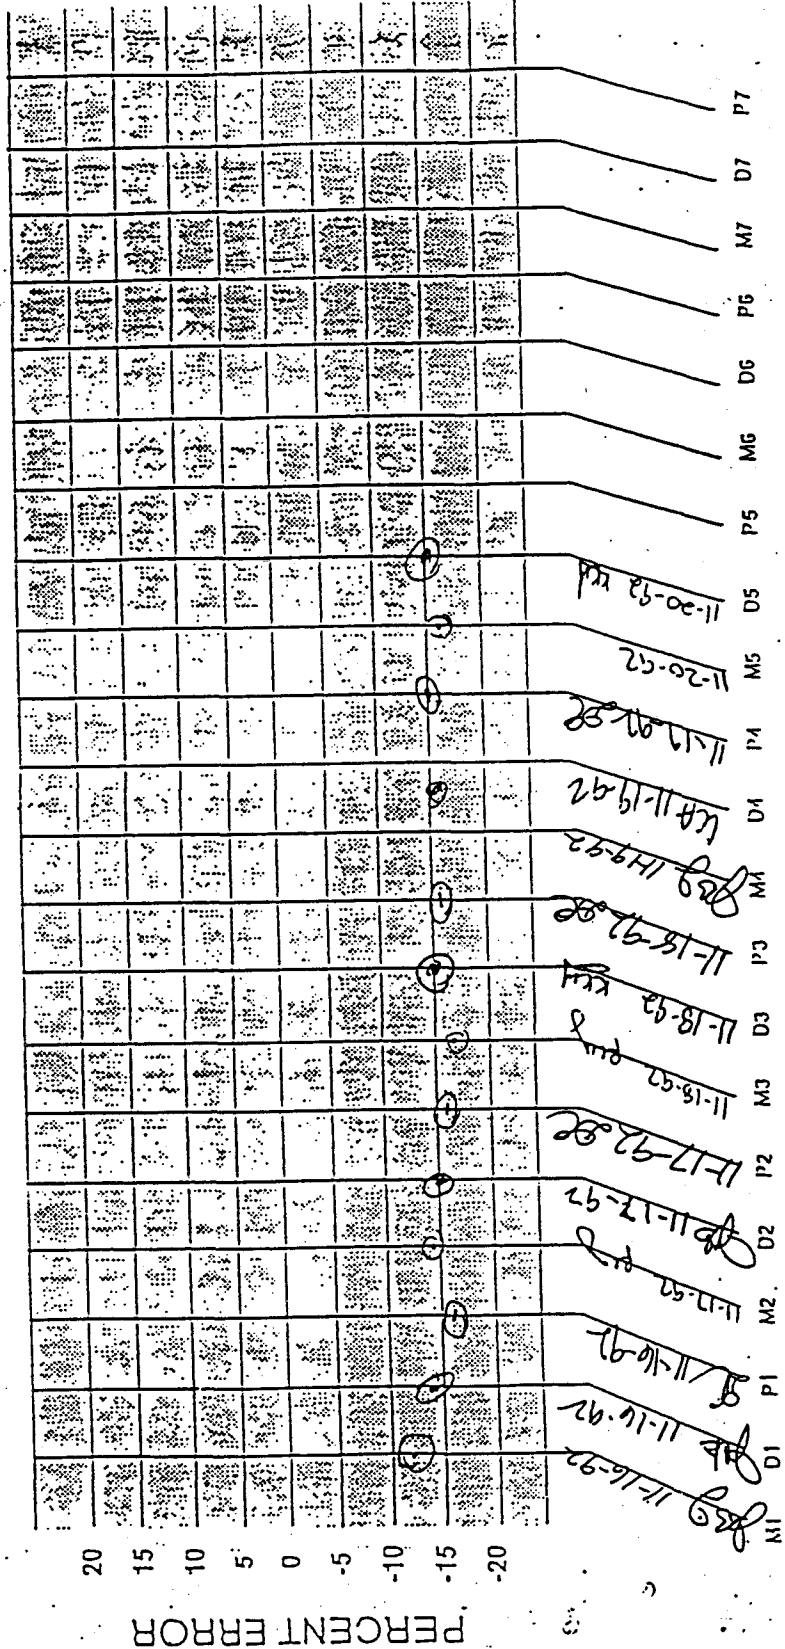 PERCENT ERROR
20
15
10
5
0
-5
-10
-15
-20
M1 D1 P1 M2 D2 P2 M3 D3 P3 M4 D4 P4 M5 D5 P5 M6 D6 P6 M7 D7 P7
11-16-92
11-16-92
11-16-92
11-17-92
11-17-92
11-17-92
11-18-92
11-18-92
11-18-92
11-19-92
11-19-92
11-20-92
11-20-92